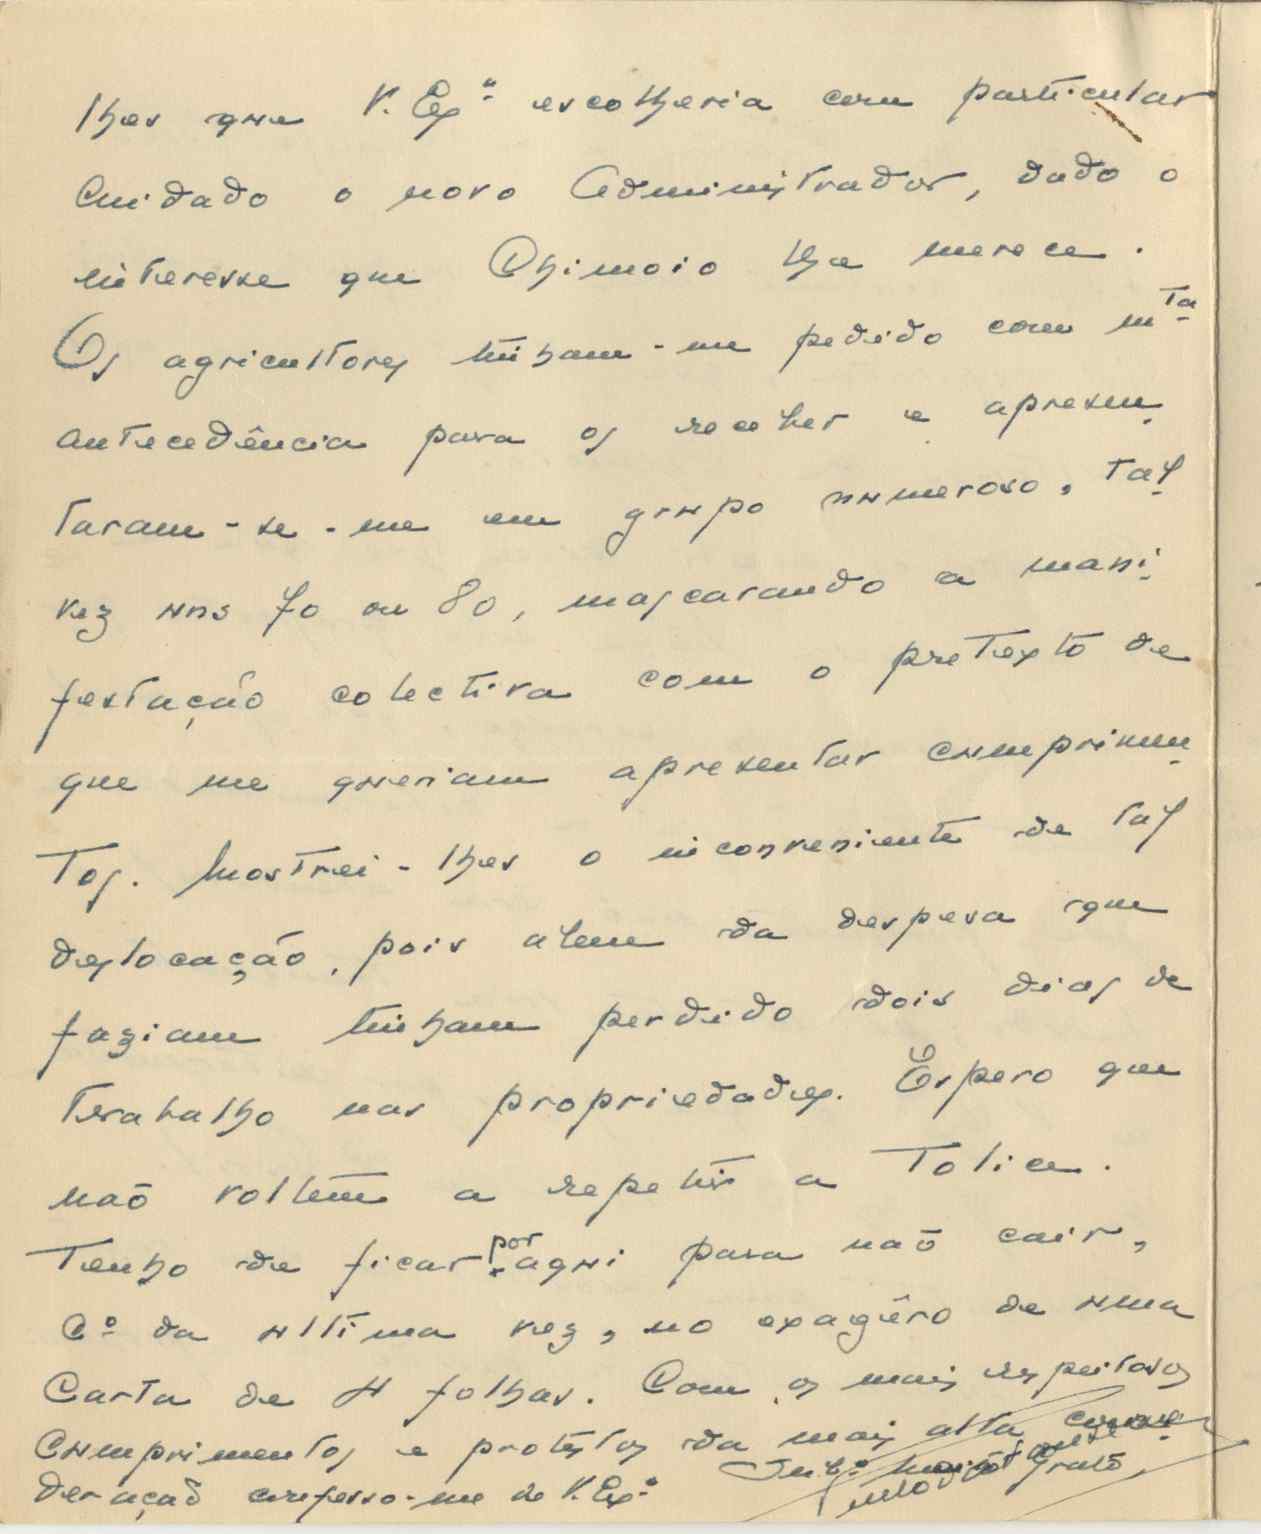 lhes que V. Exª escolheria com particular
cuidado o novo Administrador, dado o
interesse que Chimoio lhe merece.
Os agricultores tinham-me pedido com mta
antecedência para os receber e apresen-
taram-se-me em grupo numeroso, tal-
vez uns 70 ou 80, mascarando a mani-
festação colectiva com o pretexto de
que me queriam apresentar cumprimen-
tos. Mostrei-lhes o inconveniente de tal
deslocação, pois alem da despesa que
faziam tinham perdido dois dias de
trabalho nas propriedades. Espero que
não voltem a repetir a tolice.
Tenho de ficar por aqui para não cair,
Cº da ultima vez, no exagêro de uma
Carta de 4 folhas. Com os mais respeitosos
Cumprimentos e protestos da mais alta consi-
deração confesso-me de V. Exª
grato